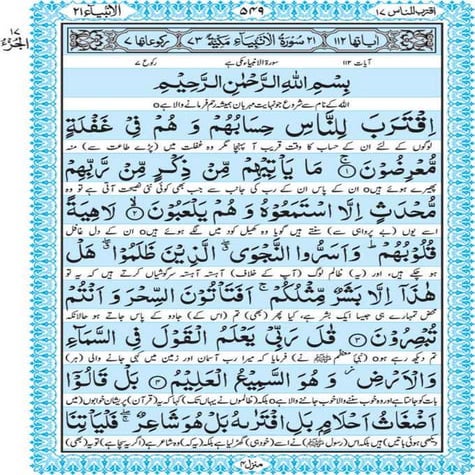 اقترب للناس ١٧
٥٤٩
الانبیاء ٢١
١٧ الجزء
اٰیاتها ١١٢ ٢١ سُوْرَةُ الْاَنْۢبِیَآءِ مَكِّیَّةٌ ٧٣ رکوعاتها ٧
آیات ١١٢ سورۃ الانبیاء مکی ہے رکوع ٧
بِسْمِ اللهِ الرَّحْمٰنِ الرَّحِیْمِ
اللہ کے نام سے شروع جو نہایت مہربان ہمیشہ رحم فرمانے والا ہے
اِقْتَرَبَ لِلنَّاسِ حِسَابُهُمْ وَ هُمْ فِیْ غَفْلَةٍ
لوگوں کے لئے ان کے حساب کا وقت قریب آ پہنچا مگر وہ غفلت میں (پڑے طاعت سے) منہ
مُّعْرِضُوْنَ ۚ﴿١﴾ مَا یَاْتِیْهِمْ مِّنْ ذِكْرٍ مِّنْ رَّبِّهِمْ
پھیرے ہوئے ہیں ان کے پاس ان کے رب کی جانب سے جب بھی کوئی نئی نصیحت آتی ہے تو وہ
مُّحْدَثٍ اِلَّا اسْتَمَعُوْهُ وَ هُمْ یَلْعَبُوْنَ ۙ﴿٢﴾ لَاهِیَةً
اسے یوں (بے پرواہی سے) سنتے ہیں گویا وہ کھیل کود میں لگے ہوئے ہیں ان کے دل غافل
قُلُوْبُهُمْ ؕ وَ اَسَرُّوا النَّجْوَی ۖ الَّذِیْنَ ظَلَمُوْا ۖ هَلْ
ہو چکے ہیں، اور (یہ) ظالم لوگ (آپ کے خلاف) آہستہ آہستہ سرگوشیاں کرتے ہیں کہ یہ تو
هٰذَاۤ اِلَّا بَشَرٌ مِّثْلُكُمْ ۚ اَفَتَاْتُوْنَ السِّحْرَ وَ اَنْتُمْ
محض تمہارے ہی جیسا ایک بشر ہے، کیا پھر (بھی) تم (اس کے) جادو کے پاس جاتے ہو حالانکہ
تُبْصِرُوْنَ ﴿٣﴾ قٰلَ رَبِّیْ یَعْلَمُ الْقَوْلَ فِی السَّمَآءِ
تم دیکھ رہے ہو (نبی معظم ﷺ نے) فرمایا کہ میرا رب آسمان اور زمین میں کہی جانے والی (ہر)
وَ الْاَرْضِ ؗ وَ هُوَ السَّمِیْعُ الْعَلِیْمُ ﴿٤﴾ بَلْ قَالُوْۤا
بات کو جانتا ہے اور وہ خوب سننے والا خوب جاننے والا ہے بلکہ (ظالموں نے یہاں تک) کہا کہ یہ (قرآن) پریشان خوابوں (میں
اَضْغَاثُ اَحْلَامٍۭ بَلِ افْتَرٰىهُ بَلْ هُوَ شَاعِرٌ ۖۚ فَلْیَاْتِنَا
دیکھی ہوئی باتیں) ہیں بلکہ اس (رسول ﷺ) نے اسے (خود ہی) گھڑ لیا ہے بلکہ (یہ کہ) وہ شاعر ہے، (اگر یہ سچا ہے) تو یہ (بھی)
منزل ٤